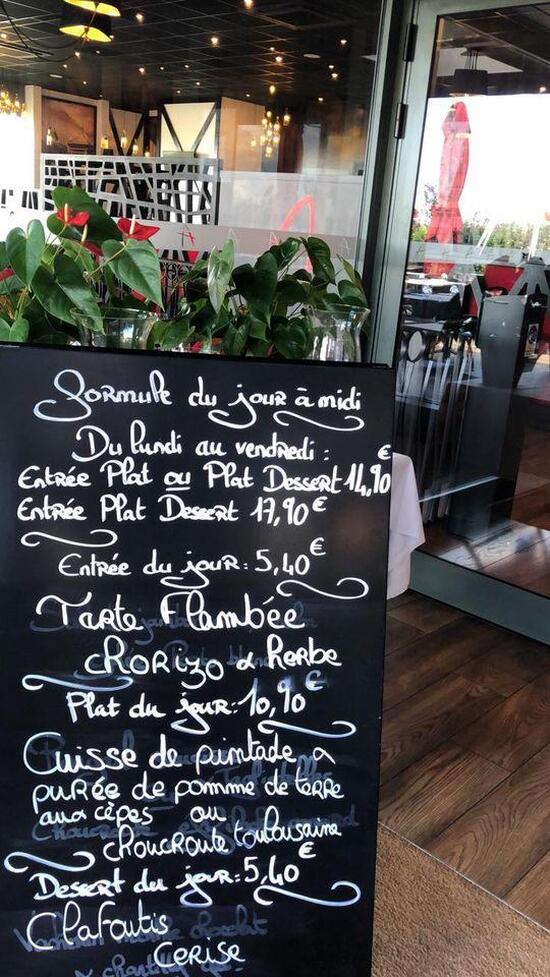 Formule du jour à midi
Du lundi au vendredi :
Entrée Plat ou Plat Dessert 14,90 €
Entrée Plat Dessert 17,90 €
Entrée du jour : 5,40 €
Tarte Flambée
chorizo & Herbe
Plat du jour : 10,90 €
Cuisse de pintade a
purée de pomme de terre
aux cèpes ou
choucroute toulousaine
Dessert du jour : 5,40 €
Clafoutis
Cerise